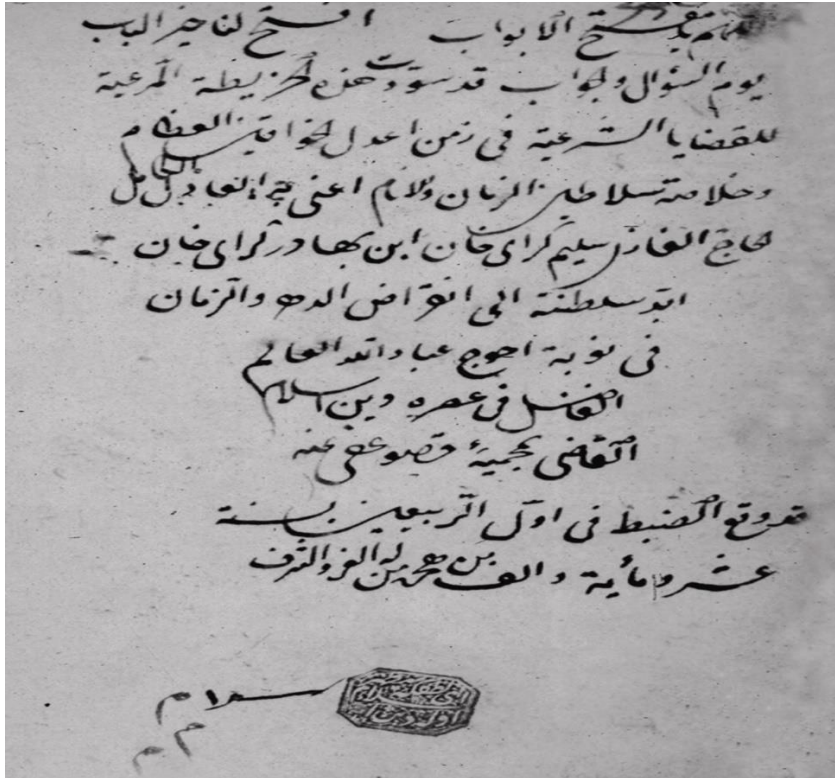 اللهم يا مفتح الابواب افتح لنا خير الباب
يوم السؤال والجواب قد سودت هذه الخريطة المرعية
للقضايا الشرعية فى زمن اعدل الخواقين العظام
وخلاصة سلاطين الزمان والانام اعنى به العادل الكامل
الحاج الغازى سليم كراى خان ابن بهادر كراى خان
ابد سلطنته الى انقراض الدهر والزمان
فى نوبة احوج عباد الله العالم
الفاضل فى عصره وبين اسلام
القاضى عفى عنه
قد وقع الضبط فى اول الربيعين لسنة
عشر ومأية والف من هجرة من له العز والشرف